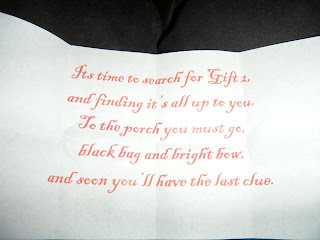 Its time to search for Gift 2,
and finding it's all up to you.
To the porch you must go,
black bag and bright bow,
and soon you'll have the last clue.